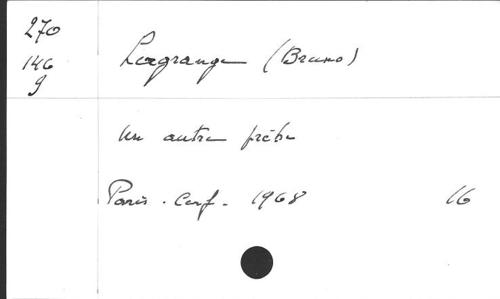 270
146
g
Lagrange (Bruno)
Un autre prêtre
Paris - Cerf - 1968 16